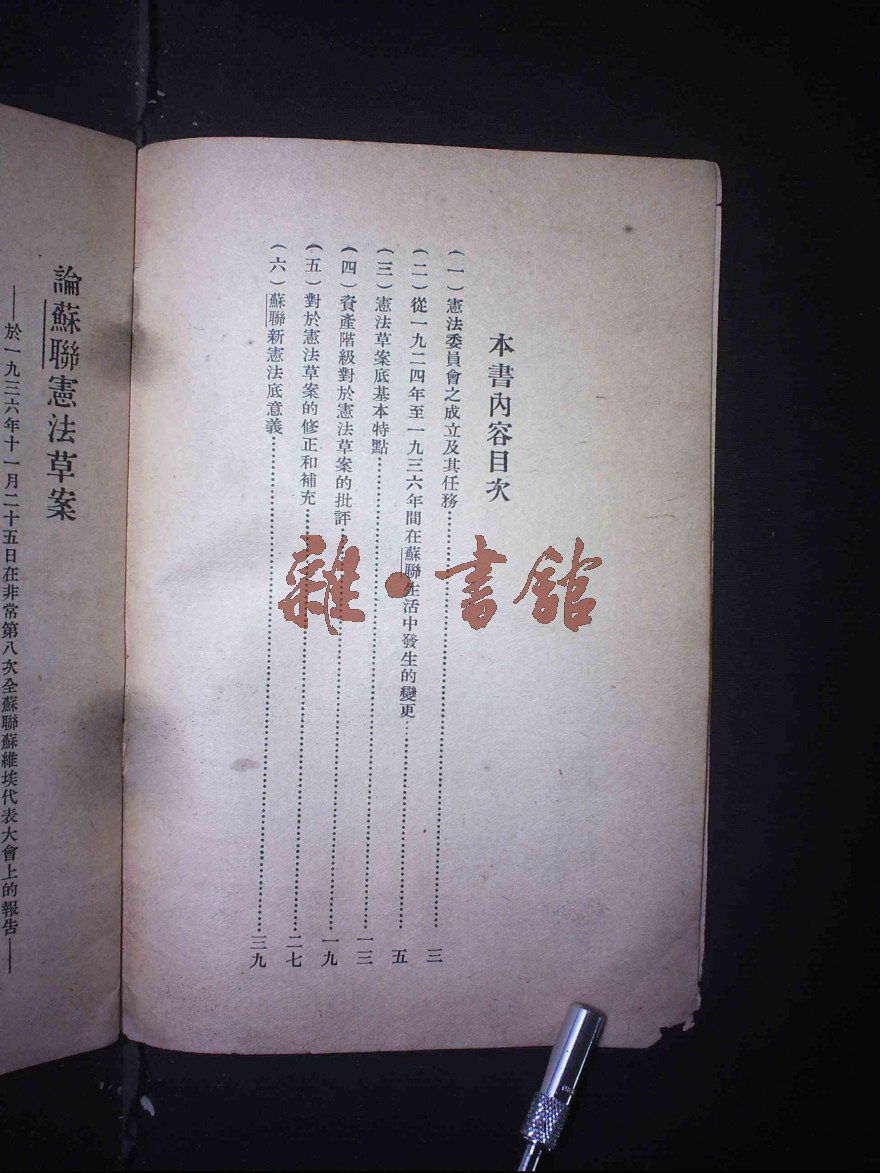 本書內容目次
(一)憲法委員會之成立及其任務……三
(二)從一九二四年至一九三六年間在蘇聯生活中發生的變更……五
(三)憲法草案底基本特點……一三
(四)資產階級對於憲法草案的批評……一九
(五)對於憲法草案的修正和補充……二七
(六)蘇聯新憲法底意義……三九
論蘇聯憲法草案
——於一九三六年十一月二十五日在非常第八次全蘇聯蘇維埃代表大會上的報告——
雜·書館